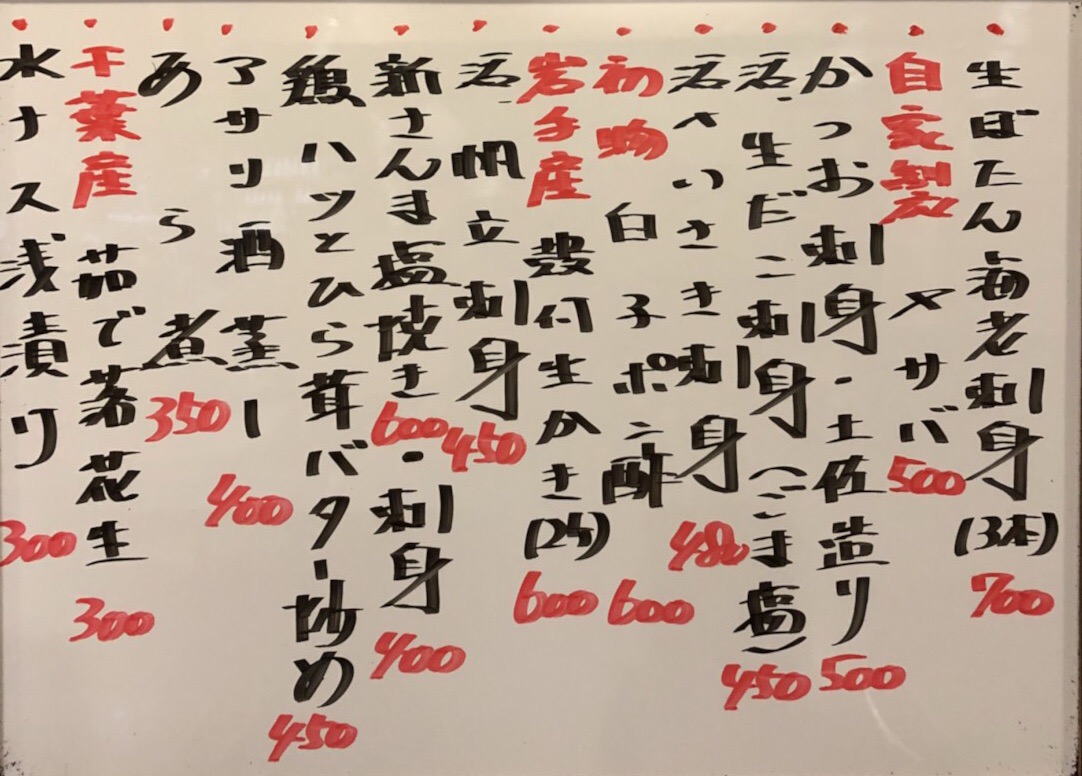 生ぼたん海老刺身(3本)700
自家製〆サバ500
かつお刺身・土佐造り500
活・生だこ刺身(ごま塩)450
活〆いさき刺身480
初物白子ポン酢600
岩手産殻付生かき(2ケ)600
活・帆立刺身450
新さんま塩焼き600・刺身400
鶏ハツとひら茸バター炒め450
アサリ酒蒸し400
あら煮350
千葉産茹で落花生300
水ナス浅漬り300